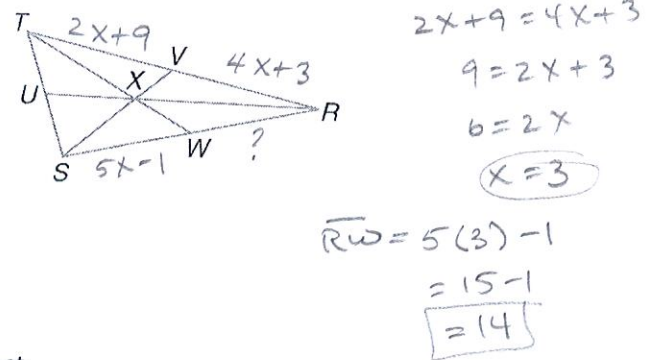 T 2x+9
V
4x+3
X
U
R
W
?
S 5x-1
2x+9 = 4x+3
9 = 2x+3
6 = 2x
x = 3
RW = 5(3) -1
= 15-1
= 14